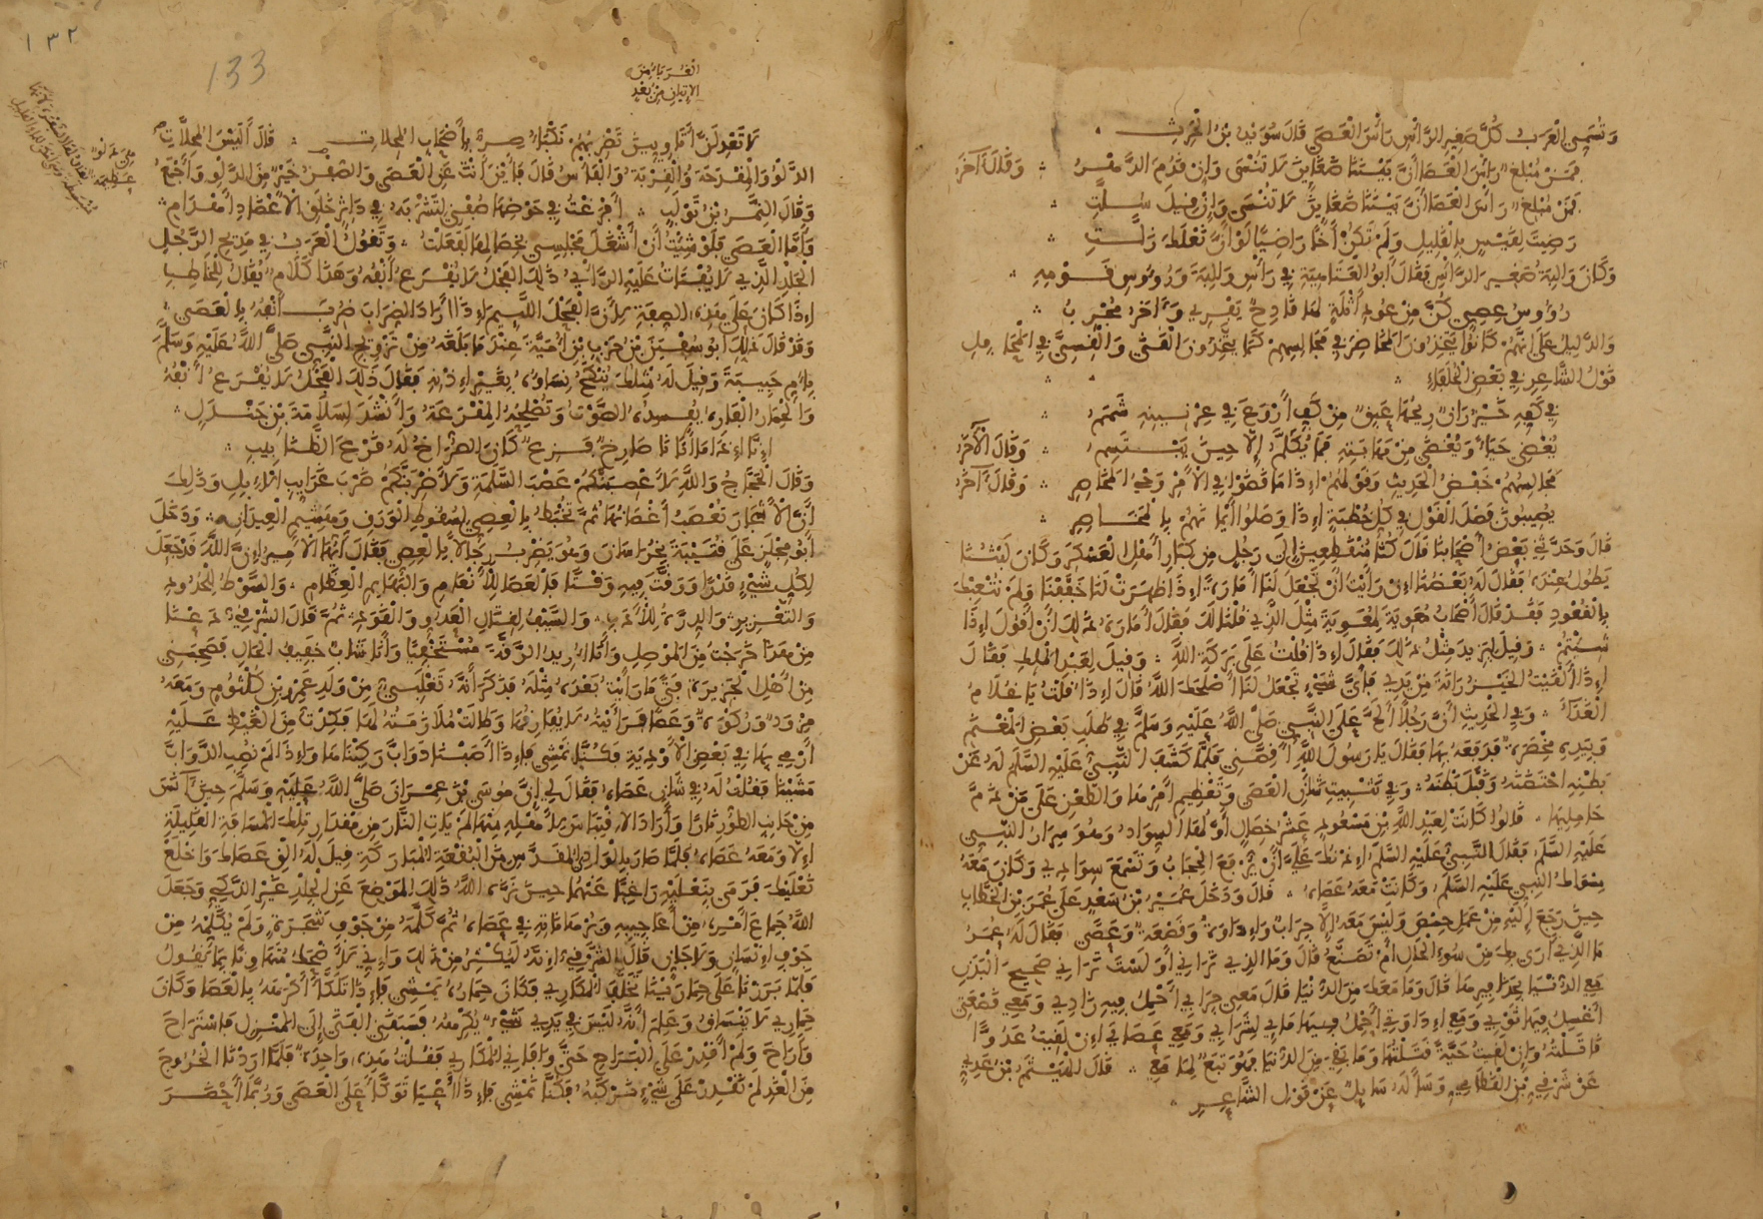 وَتُسَمِّي الْعَرَبُ كُلَّ صَغِيرِ الرَّأْسِ رَأْسَ الْعَصَى قَالَ سُوَيْدُ بْنُ الْحَرِثِ
فَمَنْ مُبْلِغٌ رَأْسَ الْعَصَا أَنَّ بَيْنَنَا ضَغَائِنَ لَا تُنْسَى وَإِنْ قَدُمَ الدَّهْرُ وَقَالَ آخَرُ
فَمَنْ مُبْلِغٌ رَأْسَ الْعَصَا أَنَّ بَيْنَنَا ضَغَائِنَ لَا تُنْسَى وَإِنْ قِيلَ سُلَّتِ
رَضِيتَ لِقَيْسٍ بِالْقَلِيلِ وَلَمْ تَكُنْ أَخًا رَاضِيًا لَوْ أَنَّ نَعْلَكَ زَلَّتِ
وَكَانَ وَالِبَةُ صَغِيرَ الرَّأْسِ فَقَالَ أَبُو الْعَتَاهِيَةِ فِي رَأْسِ وَالِبَةَ وَرُءُوسِ قَوْمِهِ
رُؤُوسُ عِصِيٍّ كُنَّ مِنْ عُودِ أَثْلَةٍ لَهَا قَادِحٌ يَفْرِي وَآخَرُ مُخْرِبُ
وَالدَّلِيلُ عَلَى أَنَّهُمْ كَانُوا يَتَّخِذُونَ الْمَخَاصِرَ فِي مَجَالِسِهِمْ كَمَا يَتَّخِذُونَ الْقَنَى وَالْقِسِيَّ فِي الْمَحَافِلِ
قَوْلُ الشَّاعِرِ فِي بَعْضِ الْخُلَفَاءِ
فِي كَفِّهِ خَيْزُرَانٌ رِيحُهَا عَبِقٌ مِنْ كَفِّ أَرْوَعَ فِي عِرْنِينِهِ شَمَمُ
يُغْضِي حَيَاءً وَيُغْضَى مِنْ مَهَابَتِهِ فَمَا يُكَلَّمُ إِلَّا حِينَ يَبْتَسِمُ وَقَالَ الْآخَرُ
مَجَالِسُهُمْ خَفْضُ الْحَدِيثِ وَقَوْلُهُمْ إِذَا مَا قَضَوْا فِي الْأَمْرِ وَحْيُ الْمَخَاصِرِ وَقَالَ آخَرُ
يُصِيبُونَ فَصْلَ الْقَوْلِ فِي كُلِّ خُطْبَةٍ إِذَا وَصَلُوا أَيْمَانَهُمْ بِالْمَخَاصِرِ
قَالَ وَحَدَّثَنِي بَعْضُ أَصْحَابِنَا قَالَ كُنَّا مُنْقَطِعِينَ إِلَى رَجُلٍ مِنْ كِبَارِ أَهْلِ الْعَسْكَرِ وَكَانَ لَبْثُنَا
يَطُولُ عِنْدَهُ فَقَالَ لَهُ بَعْضُنَا إِنْ رَأَيْتَ أَنْ تَجْعَلَ لَنَا أَمَارَةً إِذَا ظَهَرَتْ لَنَا خَفَّفْنَا وَلَمْ نُتْعِبْكَ
بِالْقُعُودِ فَقَدْ قَالَ أَصْحَابُ مُعَوِيَةَ لِمُعَوِيَةَ مِثْلَ الَّذِي قُلْنَا لَكَ فَقَالَ أَمَارَةُ ذَلِكَ أَنْ أَقُولَ إِذَا
شِئْتُمْ وَقِيلَ لِيَزِيدَ مِثْلُ ذَلِكَ فَقَالَ إِذَا قُلْتُ عَلَى بَرَكَةِ اللَّهِ وَقِيلَ لِعَبْدِ الْمَلِكِ فَقَالَ
إِذَا أَلْقَيْتُ الْخَيْزُرَانَةَ مِنْ يَدِي فَأَيَّ شَيْءٍ تَجْعَلُ لَنَا أَصْلَحَكَ اللَّهُ قَالَ إِذَا قُلْتُ يَا غُلَامُ
الْغَدَاءَ وَفِي الْحَدِيثِ أَنَّ رَجُلًا أَلَحَّ عَلَى النَّبِيِّ صَلَّى اللَّهُ عَلَيْهِ وَسَلَّمَ فِي طَلَبِ بَعْضِ الْمَغْنَمِ
وَبِيَدِهِ مِخْصَرَةٌ فَدَفَعَهُ بِهَا فَقَالَ يَا رَسُولَ اللَّهِ أَقِصَّنِي فَلَمَّا كَشَفَ النَّبِيُّ عَلَيْهِ السَّلَمُ لَهُ عَنْ
بَطْنِهِ احْتَضَنَهُ وَقَبَّلَ بَطْنَهُ وَفِي تَثْبِيتِ شَأْنِ الْعَصَى وَتَعْظِيمِ أَمْرِهَا وَالطَّعْنِ عَلَى مَنْ ذَمَّ
حَامِلَهَا قَالُوا كَانَتْ لِعَبْدِ اللَّهِ بْنِ مَسْعُودٍ عَشْرُ خِصَالٍ أَوَّلُهَا السِّوَادُ وَهُوَ سِرَارُ النَّبِيِّ
عَلَيْهِ السَّلَمُ فَقَالَ النَّبِيُّ عَلَيْهِ السَّلَمُ إِذْنُكَ عَلَيَّ أَنْ يُرْفَعَ الْحِجَابُ وَتَسْمَعَ سِوَادِي وَكَانَ مَعَهُ
مِسْوَاكُ النَّبِيِّ عَلَيْهِ السَّلَمُ وَكَانَتْ مَعَهُ عَصَاهُ قَالَ وَدَخَلَ عُمَيْرُ بْنُ سَعْدٍ عَلَى عُمَرَ بْنِ الْخَطَّابِ
حِينَ رَجَعَ إِلَيْهِ مِنْ عَمَلِ حِمْصَ وَلَيْسَ مَعَهُ إِلَّا جِرَابٌ وَإِدَاوَةٌ وَقَصْعَةٌ وَعَصًى فَقَالَ لَهُ عُمَرُ
مَا الَّذِي أَرَى بِكَ مِنْ سُوءِ الْحَالِ أَمْ تَصَنُّعٌ قَالَ وَمَا الَّذِي تَرَى بِي أَوَلَسْتَ تَرَانِي صَحِيحَ الْبَدَنِ
مَعِيَ الدُّنْيَا بِحَذَافِيرِهَا قَالَ وَمَا مَعَكَ مِنَ الدُّنْيَا قَالَ مَعِي جِرَابِي أَحْمِلُ فِيهِ زَادِي وَمَعِي قَصْعَتِي
أَغْسِلُ فِيهَا ثَوْبِي وَمَعِي إِدَاوَتِي أَحْمِلُ فِيهَا مَائِي لِشَرَابِي وَمَعِي عَصَايَ إِنْ لَقِيتُ عَدُوًّا
قَاتَلْتُهُ وَإِنْ لَقِيتُ حَيَّةً قَتَلْتُهَا وَمَا بَقِيَ مِنَ الدُّنْيَا فَهُوَ تَبَعٌ لِمَا مَعِي قَالَ الْهَيْثَمُ بْنُ عَدِيٍّ
عَنْ شَرْقِيِّ بْنِ الْقُطَامِيِّ وَسَأَلَهُ سَائِلٌ عَنْ قَوْلِ الشَّاعِرِ
١٣٢
133
الْغُرَبَاءُ مِنَ
الْإِتْيَانِ مِنْ بُعْدٍ
لَا تَعْدِلَنَّ أَتَاوِيِّينَ تَضْرِبُهُمْ نَكْبَاءُ صِرٌّ بِأَصْحَابِ الْمُحِلَّاتِ قَالَ أَلَيْسَ الْمُحِلَّاتِ
الدَّلْوَ وَالْمِقْدَحَةَ وَالْقِرْبَةَ وَالْفَأْسَ قَالَ فَأَيْنَ أَنْتَ عَنِ الْعَصَى وَالصُّفْنُ خَيْرٌ مِنَ الدَّلْوِ وَأَجْمَعُ
وَقَالَ النَّمِرُ بْنُ تَوْلَبٍ أَفْرَغْتُ فِي حَوْضِهَا صُفْنِي لِتَشْرَبَهُ فِي دَاثِرٍ خَلَقِ الْأَعْضَادِ أَهْدَامِ
وَأَمَّا الْعَصَى فَلَوْ شِئْتُ أَنْ أَشْغَلَ مَجْلِسِي بِخِصَالِهَا لَفَعَلْتُ وَتَقُولُ الْعَرَبُ فِي مَدِيحِ الرَّجُلِ
الْجَلْدِ الَّذِي لَا يُفْتَاتُ عَلَيْهِ الرَّأْيُ ذَلِكَ الْفَحْلُ لَا يُقْرَعُ أَنْفُهُ وَهَذَا كَلَامٌ يُقَالُ لِلْخَاطِبِ
إِذَا كَانَ عَلَى هَذِهِ الصِّفَةِ لِأَنَّ الْفَحْلَ اللَّئِيمَ إِذَا أَرَادَ الضِّرَابَ ضُرِبَ أَنْفُهُ بِالْعَصَى
وَقَدْ قَالَ ذَلِكَ أَبُو سُفْيَنَ بْنُ حَرْبِ بْنِ أُمَيَّةَ عِنْدَ مَا بَلَغَهُ مِنْ تَزْوِيجِ النَّبِيِّ صَلَّى اللَّهُ عَلَيْهِ وَسَلَّمَ
بِأُمِّ حَبِيبَةَ وَقِيلَ لَهُ مِثْلُكَ تُنْكَحُ نِسَاؤُهُ بِغَيْرِ إِذْنِهِ فَقَالَ ذَلِكَ الْفَحْلُ لَا يُقْرَعُ أَنْفُهُ
وَالْحِمَارُ الْفَارِهُ يُفْسِدُهُ الصَّوْتُ وَتُصْلِحُهُ الْمِقْرَعَةُ وَأَنْشَدَ لِسَلَامَةَ بْنِ جَنْدَلٍ
إِنَّا إِذَا مَا أَتَانَا صَارِخٌ فَزِعٌ كَانَ الصُّرَاخُ لَهُ قَرْعَ الظَّنَابِيبِ
وَقَالَ الْحَجَّاجُ وَاللَّهِ لَأَعْصِبَنَّكُمْ عَصْبَ السَّلَمَةِ وَلَأَضْرِبَنَّكُمْ ضَرْبَ غَرَايِبِ الْإِبِلِ وَذَلِكَ
أَنَّ الْأَشْجَارَ تُعْصَبُ أَغْصَانُهَا ثُمَّ تُخْبَطُ بِالْعِصِيِّ لِسُقُوطِ الْوَرَقِ وَهَشِيمِ الْعِيدَانِ وَدَخَلَ
أَبُو مِجْلَزٍ عَلَى قُتَيْبَةَ بِخُرَاسَانَ وَهُوَ يَضْرِبُ رِجَالًا بِالْعِصِيِّ فَقَالَ أَيُّهَا الْأَمِيرُ إِنَّ اللَّهَ قَدْ جَعَلَ
لِكُلِّ شَيْءٍ قَدْرًا وَوَقَّتَ فِيهِ وَقْتًا فَالْعَصَا لِلْأَنْعَامِ وَالْبَهَايِمِ الْعِظَامِ وَالسَّوْطُ لِلْحُدُودِ
وَالتَّعْزِيرِ وَالدِّرَّةُ لِلْأَدَبِ وَالسَّيْفُ لِقِتَالِ الْعَدُوِّ وَالْقَوَدِ ثُمَّ قَالَ الشَّرْقِيُّ دَعْنَا
مِنْ هَذَا خَرَجْتُ مِنَ الْمَوْصِلِ وَأَنَا أُرِيدُ الرَّقَّةَ مُسْتَخْفِيًا وَأَنَا شَابٌّ خَفِيفُ الْحَالِ فَصَحِبَنِي
مِنْ أَهْلِ الْجَزِيرَةِ فَتًى مَا رَأَيْتُ بَعْدَهُ مِثْلَهُ فَذَكَرَ أَنَّهُ تَغْلَبِيٌّ مِنْ وَلَدِ عَمْرِو بْنِ كُلْثُومٍ وَمَعَهُ
مِزْوَدٌ وَرَكْوَةٌ وَعَصًا فَرَأَيْتُهُ لَا يُفَارِقُهَا وَطَالَتْ مُلَازَمَتُهُ لَهَا فَكِدْتُ مِنَ الْغَيْظِ عَلَيْهِ
أَرْمِي بِهَا فِي بَعْضِ الْأَوْدِيَةِ فَكُنَّا نَمْشِي فَإِذَا أَصَبْنَا دَوَابَّ رَكِبْنَاهَا وَإِذَا لَمْ نُصِبِ الدَّوَابَّ
مَشَيْنَا فَقُلْتُ لَهُ فِي شَأْنِ عَصَاهُ فَقَالَ لِي إِنَّ مُوسَى بْنَ عِمْرَانَ صَلَّى اللَّهُ عَلَيْهِ وَسَلَّمَ حِينَ آنَسَ
مِنْ جَانِبِ الطُّورِ نَارًا وَأَرَادَ الِاقْتِبَاسَ لِأَهْلِهِ مِنْهَا لَمْ يَأْتِ النَّارَ مِنْ مِقْدَارِ تِلْكَ الْمَسَافَةِ الْقَلِيلَةِ
إِلَّا وَمَعَهُ عَصَاهُ فَلَمَّا صَارَ بِالْوَادِ الْمُقَدَّسِ مِنَ الْبُقْعَةِ الْمُبَارَكَةِ قِيلَ لَهُ أَلْقِ عَصَاكَ وَاخْلَعْ
نَعْلَيْكَ فَرَمَى بِنَعْلَيْهِ رَاغِبًا عَنْهُمَا حِينَ نَزَّهَ اللَّهُ ذَلِكَ الْمَوْضِعَ عَنِ الْجِلْدِ غَيْرِ الذَّكِيِّ وَجَعَلَ
اللَّهُ جِمَاعَ أَمْرِهِ مِنْ أَعَاجِيبِهِ وَبُرْهَانَاتِهِ فِي عَصَاهُ ثُمَّ كَلَّمَهُ مِنْ جَوْفِ شَجَرَةٍ وَلَمْ يُكَلِّمْهُ مِنْ
جَوْفِ إِنْسَانٍ وَلَا جَانٍّ قَالَ الشَّرْقِيُّ إِنَّهُ لَيُكْثِرُ مِنْ ذَلِكَ وَإِنِّي لَأَضْحَكُ مُتَهَاوِنًا بِمَا يَقُولُ
فَلَمَّا بَرَزْنَا عَلَى حِمَارَيْنَا تَخَلَّفَ الْمُكَارِي فَكَانَ حِمَارُهُ يَمْشِي فَإِذَا تَلَكَّأَ أَكْرَهَهُ بِالْعَصَا وَكَانَ
حِمَارِي لَا يَنْسَاقُ وَعَلِمَ أَنَّهُ لَيْسَ فِي يَدِي شَيْءٌ يُكْرِهُهُ فَسَبَقَنِي الْفَتَى إِلَى الْمَنْزِلِ فَاسْتَرَاحَ
وَأَرَاحَ وَلَمْ أَقْدِرْ عَلَى الْبَرَاحِ حَتَّى وَافَانِي الْمُكَارِي فَقُلْتُ هَذِهِ وَاحِدَةٌ فَلَمَّا أَرَدْنَا الْخُرُوجَ
مِنَ الْغَدِ لَمْ نَقْدِرْ عَلَى شَيْءٍ نَرْكَبُهُ فَكُنَّا نَمْشِي فَإِذَا أَعْيَا تَوَكَّأَ عَلَى الْعَصَى وَرُبَّمَا أَحْضَرَ